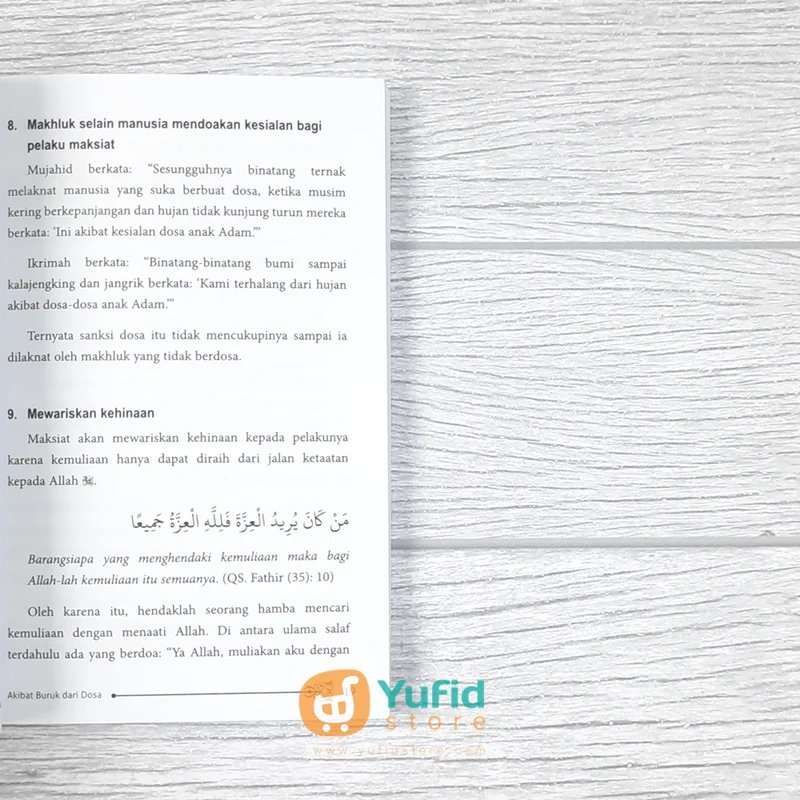 8. Makhluk selain manusia mendoakan kesialan bagi
pelaku maksiat
Mujahid berkata: “Sesungguhnya binatang ternak
melaknat manusia yang suka berbuat dosa, ketika musim
kering berkepanjangan dan hujan tidak kunjung turun mereka
berkata: ‘Ini akibat kesialan dosa anak Adam.’”
Ikrimah berkata: “Binatang-binatang bumi sampai
kalajengking dan jangrik berkata: ‘Kami terhalang dari hujan
akibat dosa-dosa anak Adam.’”
Ternyata sanksi dosa itu tidak mencukupinya sampai ia
dilaknat oleh makhluk yang tidak berdosa.
9. Mewariskan kehinaan
Maksiat akan mewariskan kehinaan kepada pelakunya
karena kemuliaan hanya dapat diraih dari jalan ketaatan
kepada Allah ﷻ.
مَنْ كَانَ يُرِيدُ الْعِزَّةَ فَلِلَّهِ الْعِزَّةُ جَمِيعًا
Barangsiapa yang menghendaki kemuliaan maka bagi
Allah-lah kemuliaan itu semuanya. (QS. Fathir (35): 10)
Oleh karena itu, hendaklah seorang hamba mencari
kemuliaan dengan menaati Allah. Di antara ulama salaf
terdahulu ada yang berdoa: “Ya Allah, muliakan aku dengan
Akibat Buruk dari Dosa
Yufid
store
www.yufidstore.com